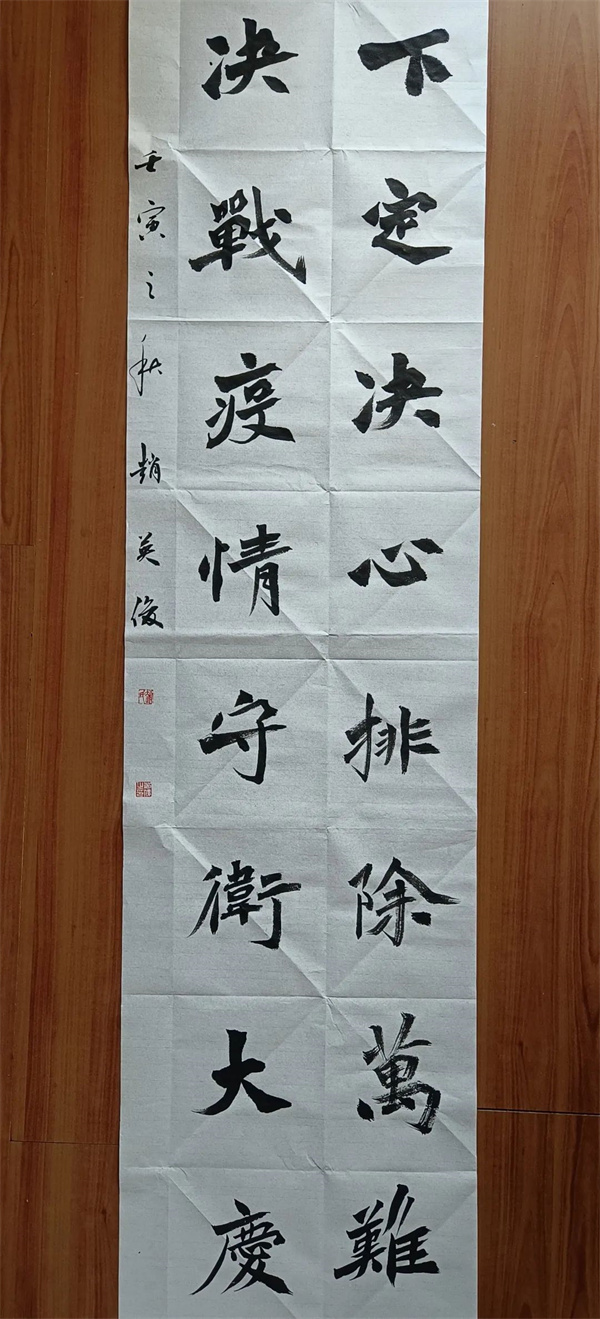 下定决心排除萬難
决戰疫情守衛大慶
壬寅之秋趙英俊